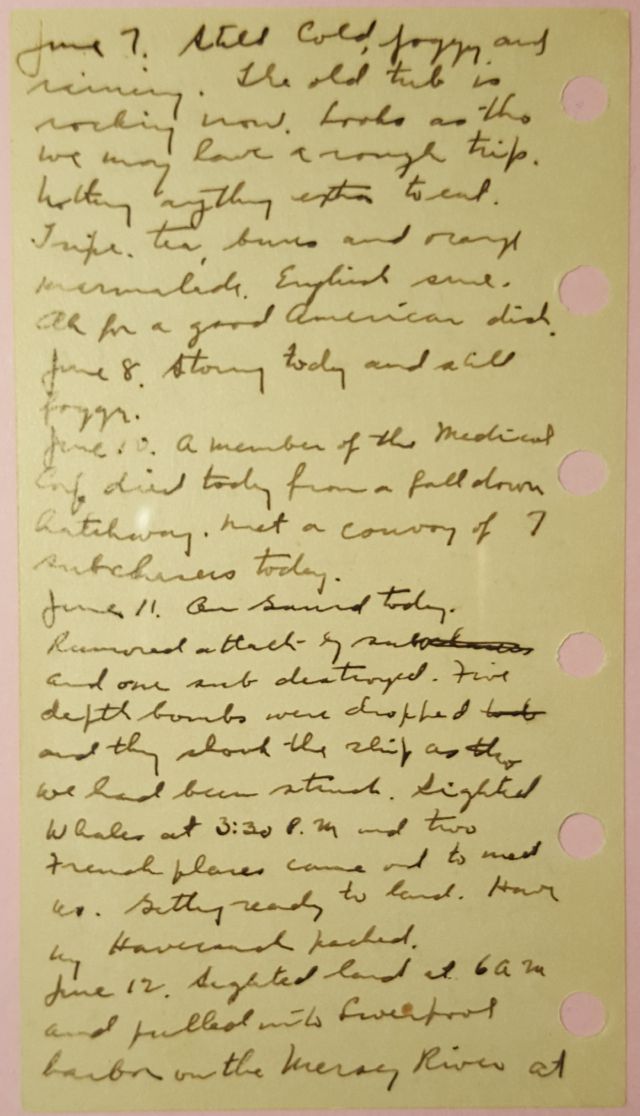 June 7. Still Cold, foggy and
raining. The old tub is
rocking now. Looks as tho
we may have a rough trip.
Nothing anything extra to eat.
Tripe. tea, buns and orange
marmalade. English sure.
Oh for a good American dish.
June 8. Stormy today and still
foggy.
June 10. A member of the Medical
Corp died today from a fall down
hatchway. Met a convoy of 7
subchasers today.
June 11. On Guard today.
Rumored attack by subchasers
and one sub destroyed. Five
depth bombs were dropped
and they shook the ship as tho
we had been struck. Sighted
Whales at 3:30 P.M and two
French planes came out to meet
us. Getting ready to land. Have
my Haversack packed.
June 12. Sighted land at 6 AM
and pulled into Liverpool
harbor on the Mersey River at